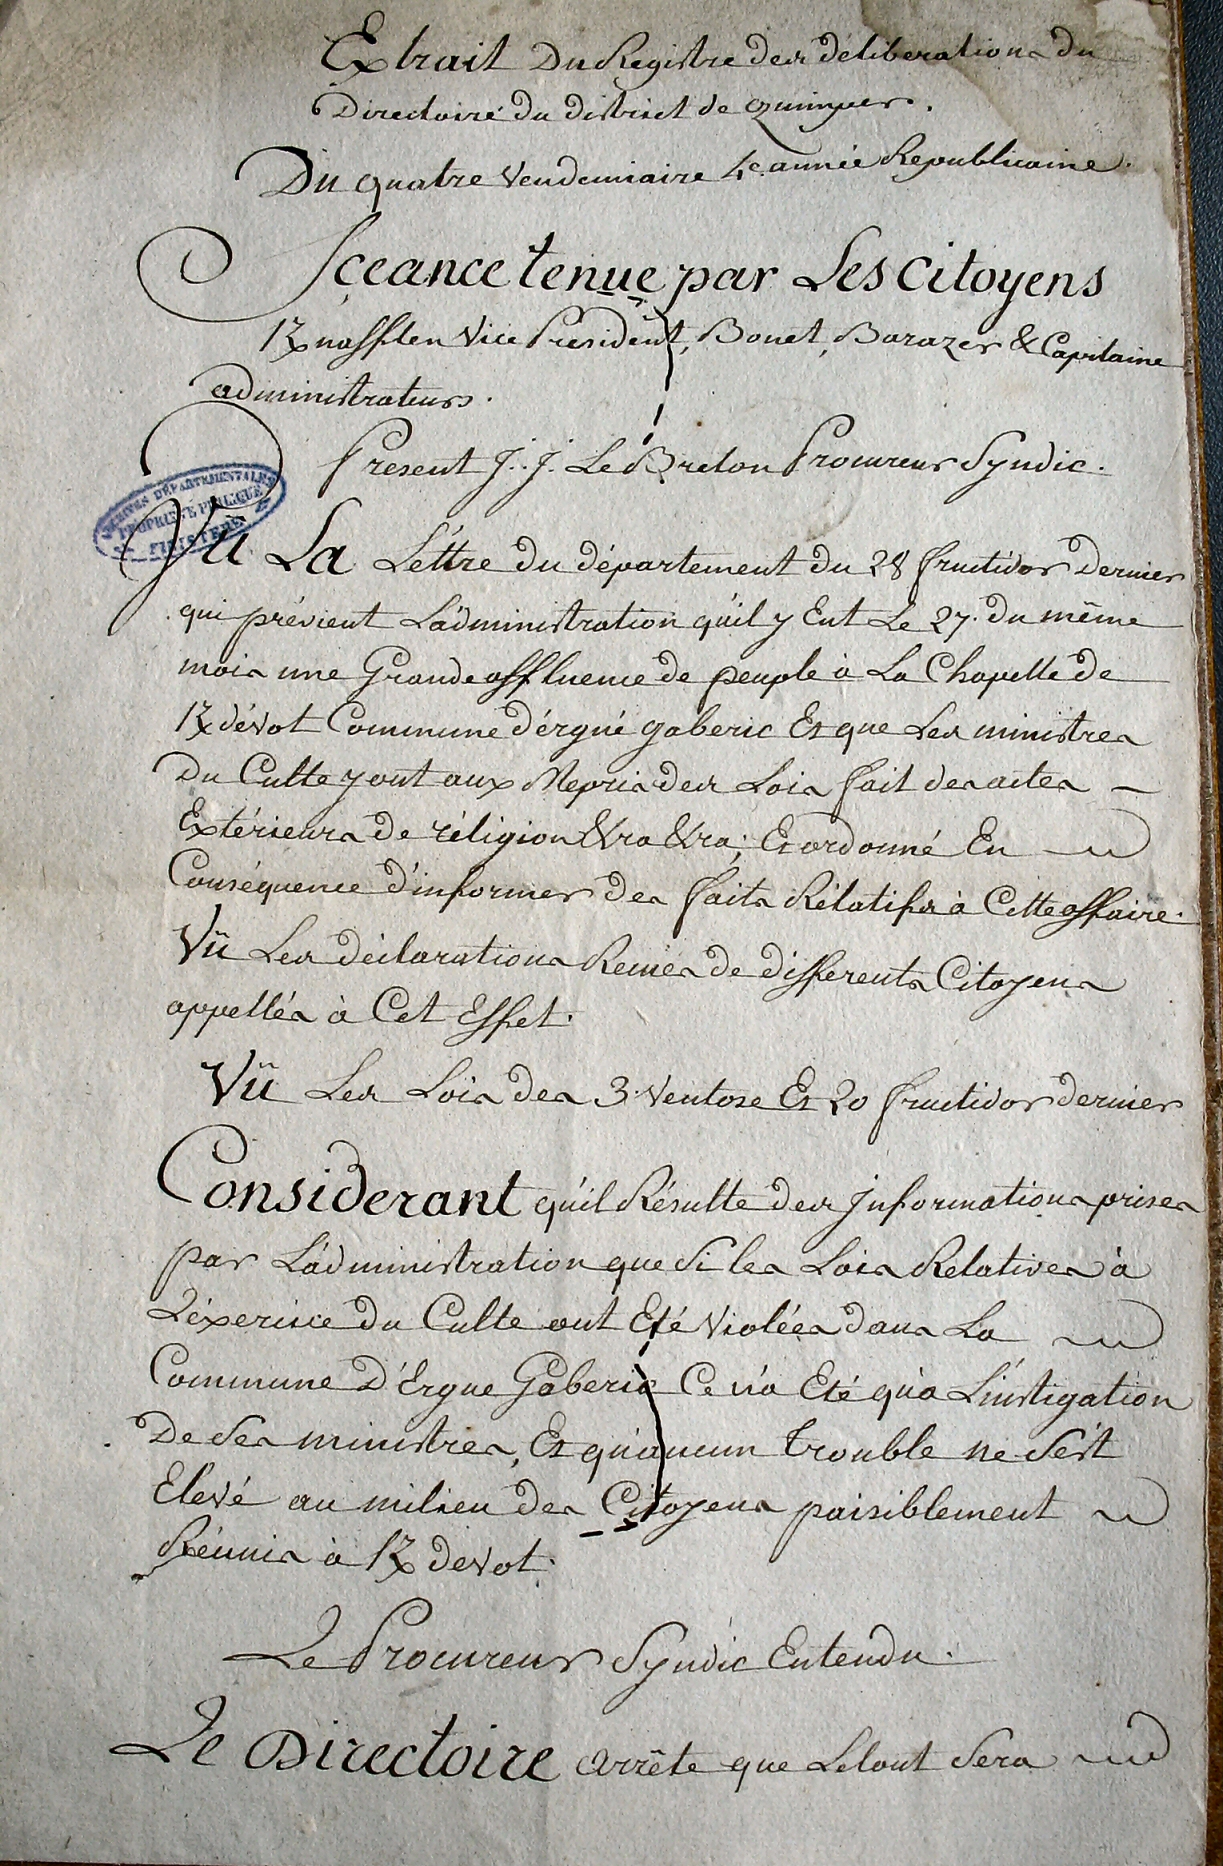 Extrait Du Registre des déliberations du
Directoire du district de quimper.
Du quatre Vendemiaire 4e. année Republicaine.
Sçeance tenue par Les Citoyens
Vice President, Bonet, Barazer & Capitaine
administrateurs.
Présent J. J. Le Breton Procureur Syndic.
ARCHIVES DÉPARTEMENTALES
PROPRIÉTÉ PUBLIQUE
FINISTERE
Vû La Léttre du département du 28 fructidor Dernier
qui prévient L'administration qu'il y Eut Le 27. du même
mois une Grande affluence de peuple à La Chapelle de
Kdévot Commune d'érgué gaberic Et que Les ministres
Du Culte y ont aux Mepris des Lois fait des actes
Extérieurs de réligion &ra &ra; Et ordonné En
Conséquence d'informer des faits Rélatifs à Cette affaire.
Vü Les déclarations Remies de différents Citoyens
appellés à Cet Effet.
Vü Les Lois des 3 Ventose Et 20 fructidor dernier
Considerant qu'il Résulte des jnformations prises
par L'administration que Si les Lois Relatives à
L'éxercice du Culte ont Eté Violées dans La
Commune D'Ergue Gaberic Ce n'a Eté qu'a L'instigation
De Ses ministres, Et qu'aucun trouble ne S'est
Elevé au milieu des Citoyens paisiblement
Réunis à Kdévot.
Le Procureur Syndic Entendu.
Le Directoire arrête que Letout Sera